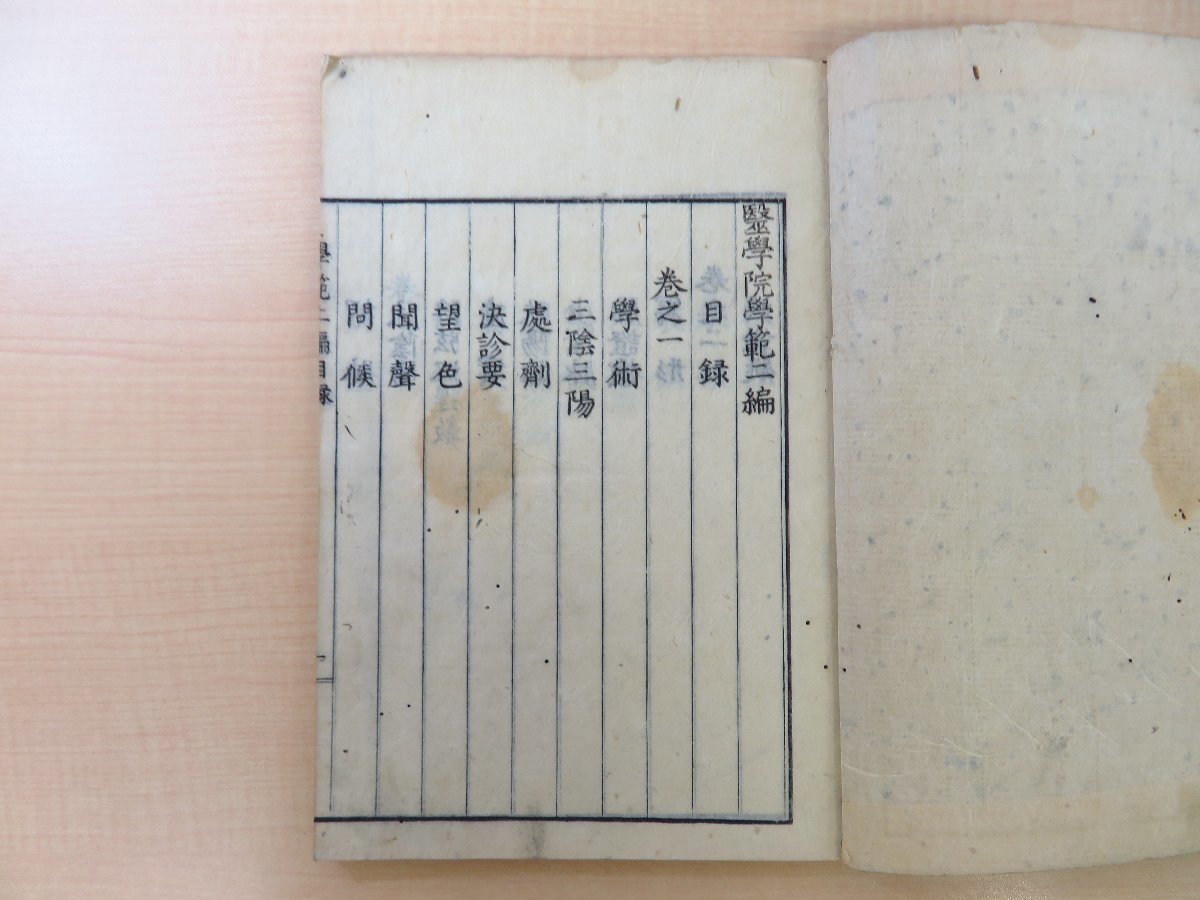 醫學院學範二編
目録
卷之一
學術
三陰三陽
處劑
決診要
望色
聞聲
問候
學範二編目録
一